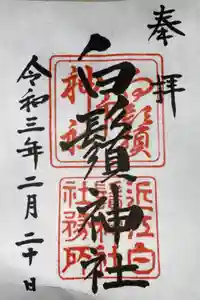 奉拝
白鬚神社
令和三年二月二十日
近江白
社務所